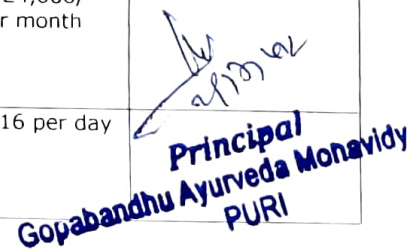 r month
16 per day
Principal
Gopabandhu Ayurveda Mohavidy
PURI